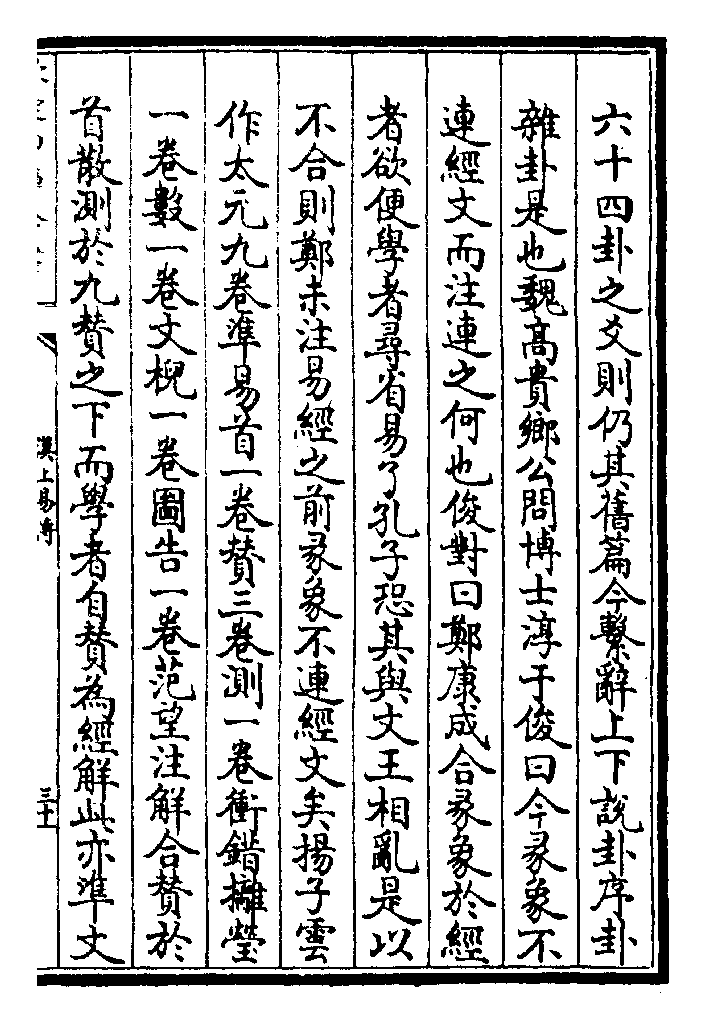 六十四卦之爻則仍其舊篇今繫辭上下說卦序卦
雜卦是也魏高貴鄉公問博士淳于俊曰今彖象不
連經文而注連之何也俊對曰鄭康成合彖象於經
者欲便學者尋省易了孔子恐其與文王相亂是以
不合則鄭未注易經之前彖象不連經文矣揚子雲
作太元九卷準易首一卷贊三卷測一卷衝錯攡瑩
一卷數一卷文棿一卷圖告一卷范望注解合贊於
首散測於九贊之下而學者自贊為經解此亦準文
漢上易傳
三十